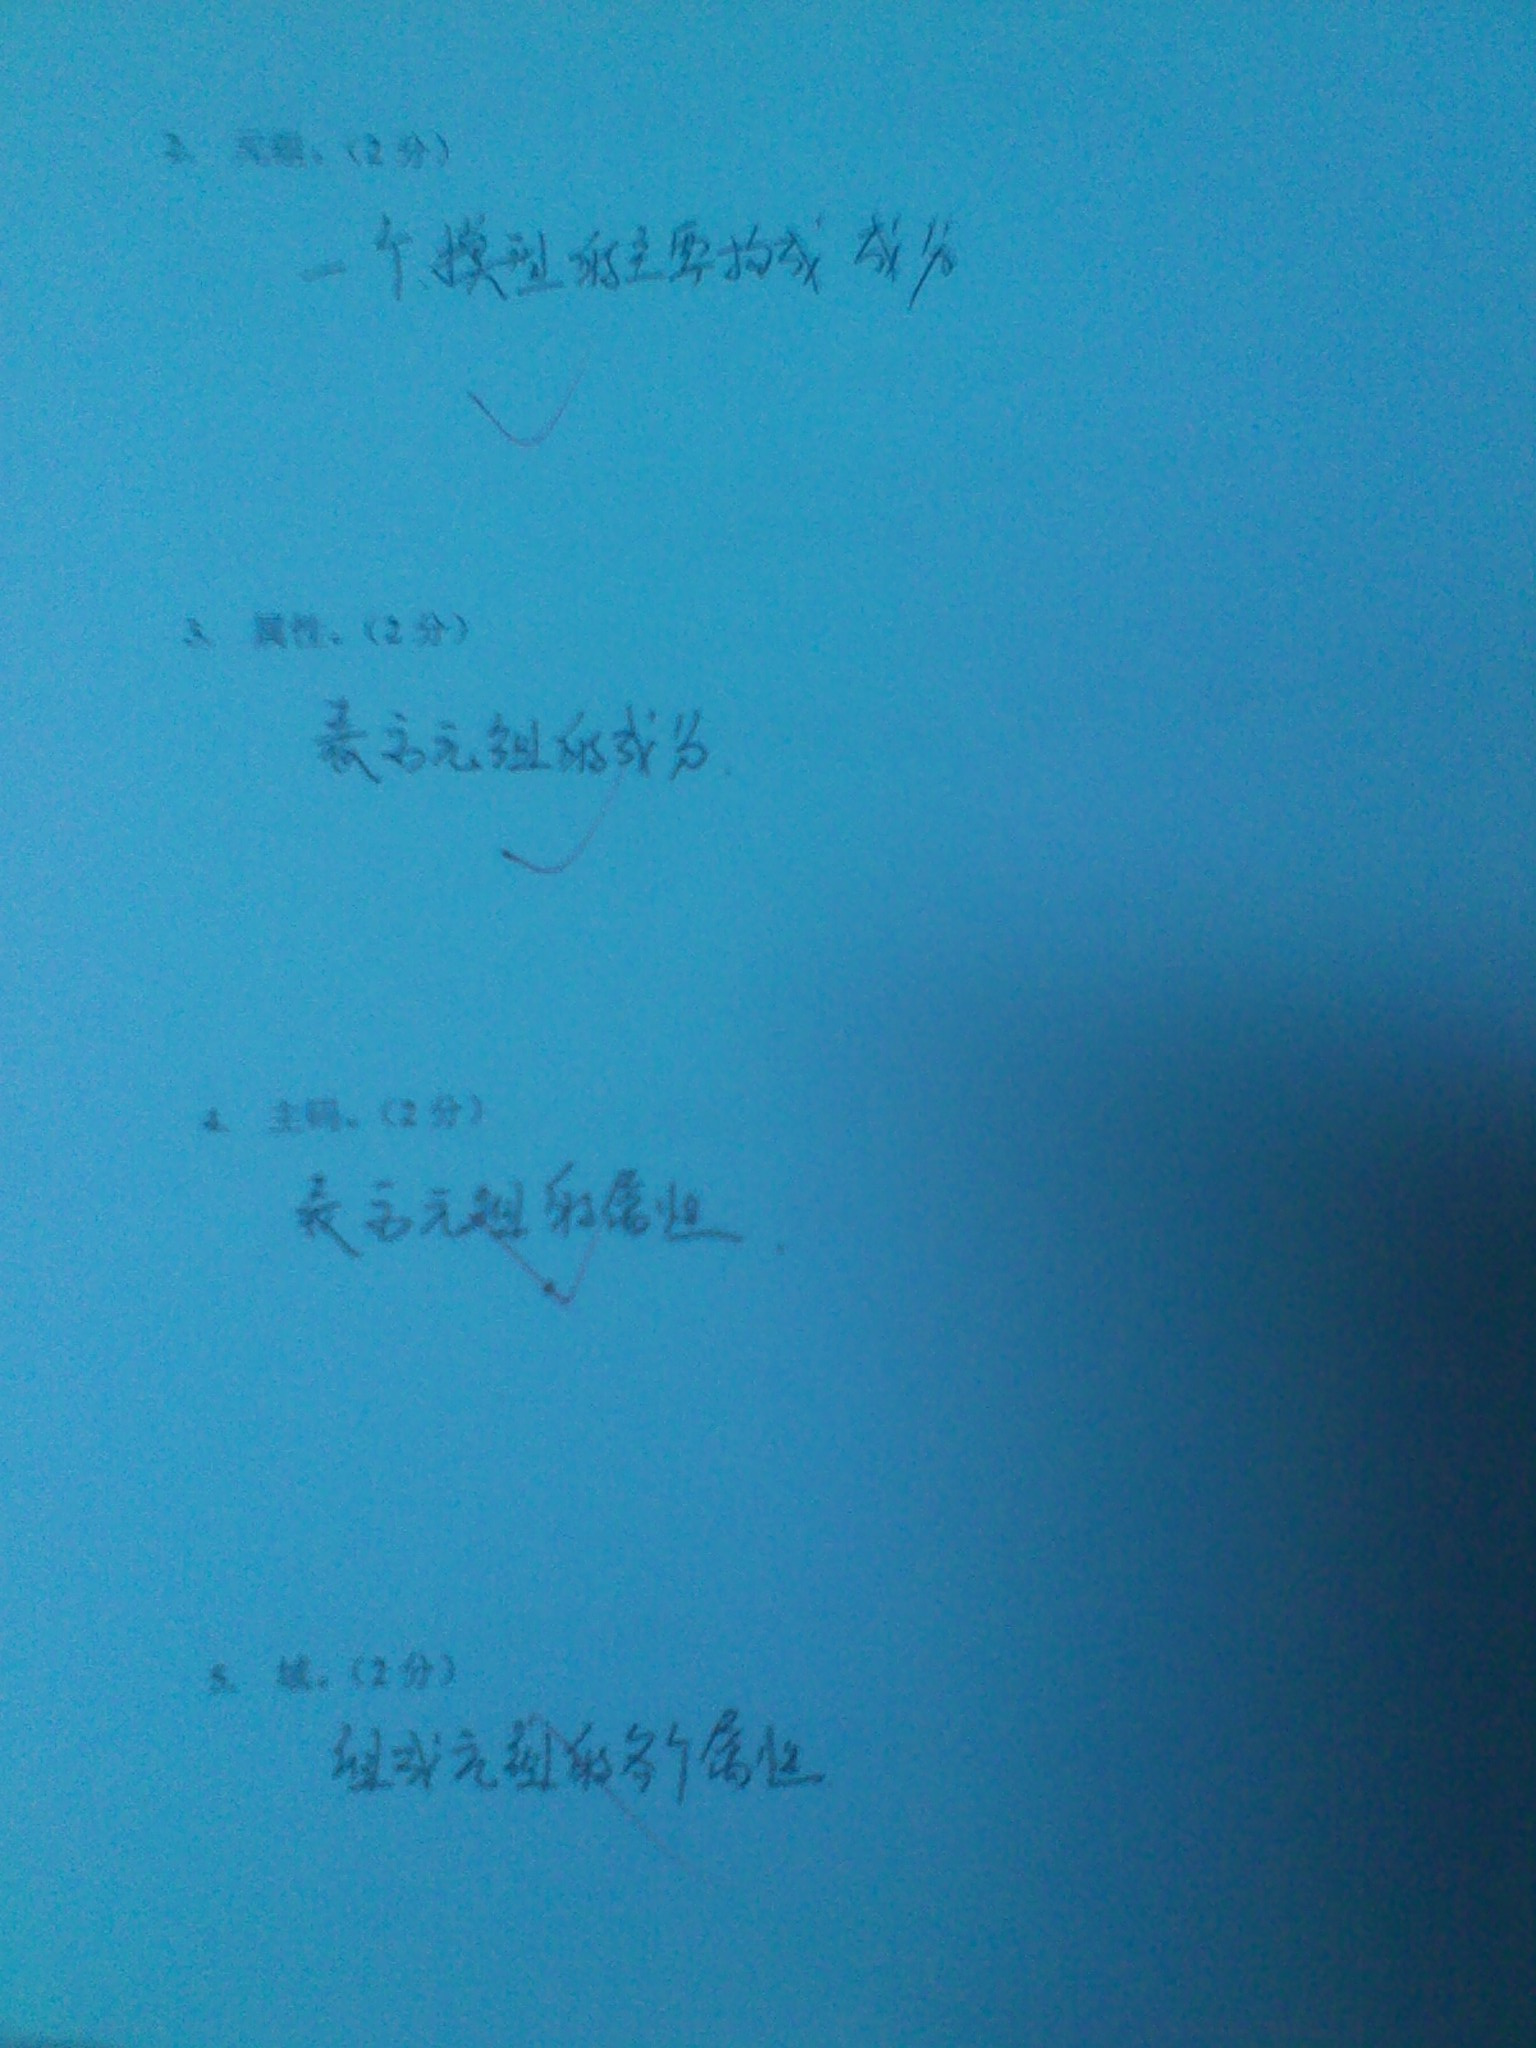 2. 元组。(2分)
一个模型的主要构成成分
3. 属性。(2分)
表示元组的成分.
4. 主码。(2分)
表示元组的属性.
5. 域。(2分)
组成元组的各个属性